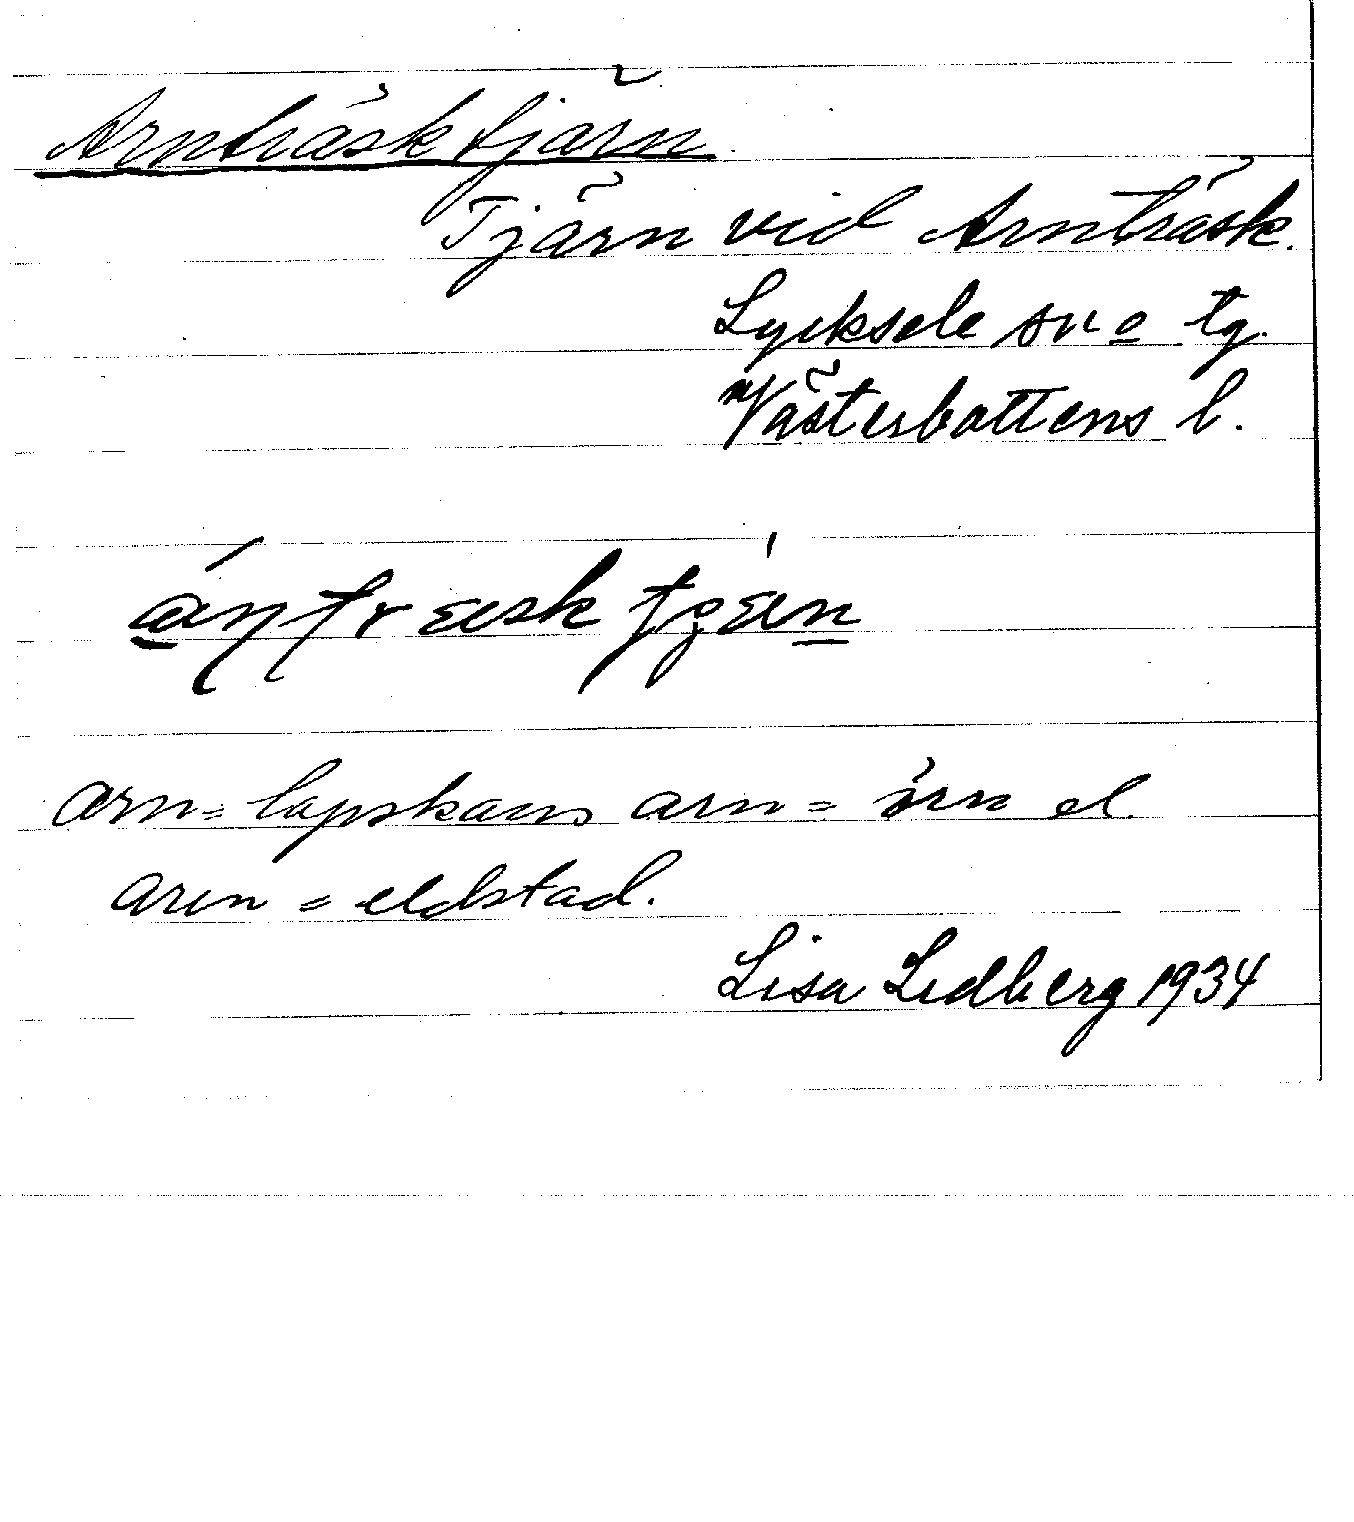 Arnträsktjärn.
Tjärn vid Arnträsk.
Lycksele sn o tg.
Västerbottens l.
arn = lapskans arn = örn el.
aren = eldstad.
Lisa Lidberg 1934